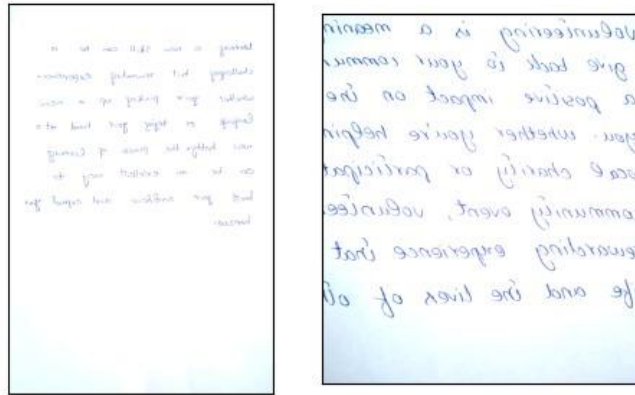 learning a new skill can be a
challenging but rewarding experience.
whether you're picking up a new
or trying your hand at a
new the process of learning
can be an excellent way to
boost your and expand your
horizons.
volunteering is a meaning
give back to your commun
a positive impact on the
you. whether you're helpin
ocal charity or participat
ommunity event, voluntee
ewarding experience that
ife and the lives of oth